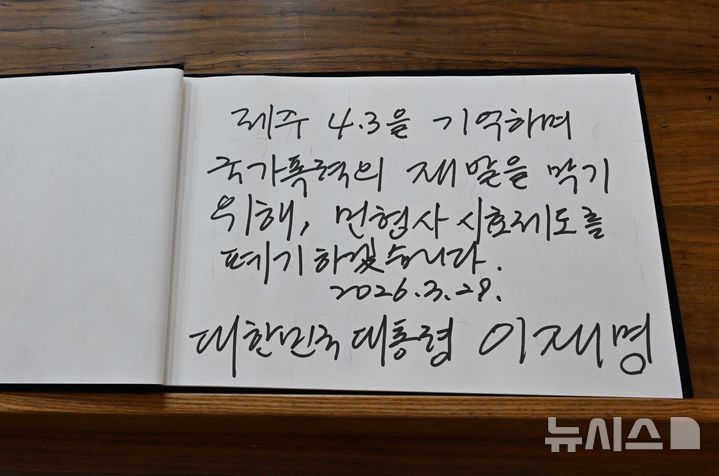 제주 4.3을 기억하며
국가폭력의 재발을 막기
위해, 민형사 시효제도를
폐기하겠습니다.
2026.3.29.
대한민국 대통령 이재명
뉴시스